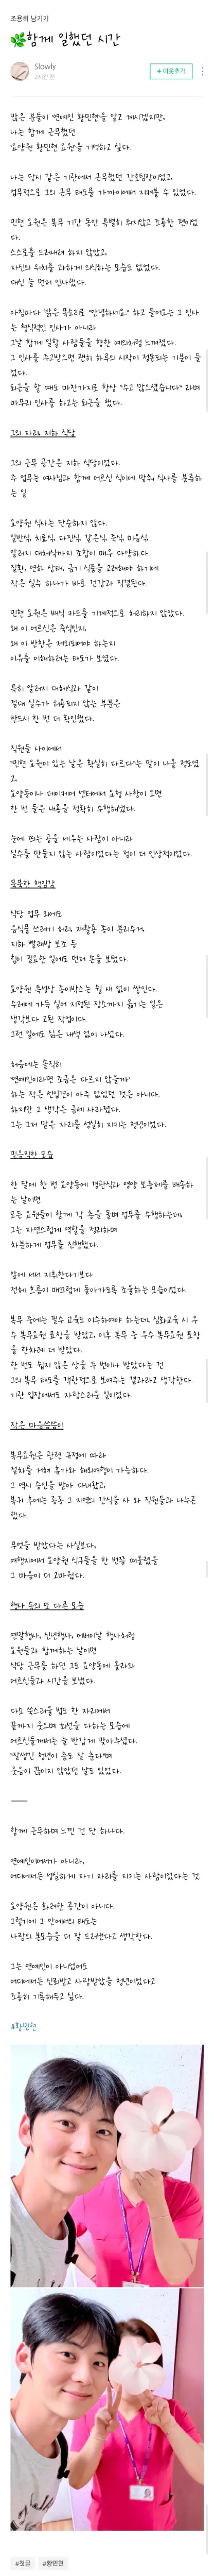 조용히 남기기
함께 일했던 시간
Slowly
2시간 전
+ 이웃추가
많은 분들이 '연예인 황민현'을 알고 계시겠지만,
나는 함께 근무했던
'요양원 황민현 요원'을 기억하고 싶다.
나는 당시 같은 기관에서 근무했던 간호팀장이었고,
업무적으로 그의 근무 태도를 가까이에서 지켜볼 수 있었다.
민현 요원은 복무 기간 동안 특별히 튀지않고 조용한 편이었
다.
스스로를 드러내려 하지 않았고,
자신의 위치를 과하게 의식하는 모습도 없었다.
대신 늘 먼저 인사했다.
아침마다 밝은 목소리로 "안녕하세요." 하고 들어오는 그 인사
는 형식적인 인사가 아니라
그날 함께 일할 사람들을 향한 예의처럼 느껴졌다.
그 인사를 주고받으면 괜히 하루의 시작이 정돈되는 기분이 들
었다.
퇴근을 할 때도 마찬가지로 항상 "수고 많으셨습니다" 라며
마무리 인사를 하고는 퇴근을 했다.
그의 자리, 지하 식당
그의 근무 공간은 지하 식당이었다.
주 업무는 여사님과 함께 어르신 식이에 맞춰 식사를 분류하
는 일
요양원 식사는 단순하지 않다.
일반식, 치료식, 다진식, 갈은식, 죽식, 미음식,
알러지 대체식까지 조합이 매우 다양하다.
질환, 연하 상태, 금기 식품을 고려해야 하기에
작은 실수 하나가 바로 건강과 직결된다.
민현 요원은 배식 카드를 기계적으로 처리하지 않았다.
왜 이 어르신은 죽식인지,
왜 이 반찬은 제외되어야 하는지
이유를 이해하려는 태도가 보였다.
특히 알러지 대체식과 같이
절대 실수가 허용되지 않는 부분은
반드시 한 번 더 확인했다.
직원들 사이에서
"민현 요원이 있는 날은 확실히 다르다"는 말이 나올 정도였
고,
요양동이나 데이케어 센터에서 요청 사항이 오면
한 번 들은 내용을 정확히 수행해냈다.
눈에 띄는 공을 세우는 사람이 아니라
실수를 만들지 않는 사람이었다는 점이 더 인상적이었다.
묵묵한 책임감
식당 업무 외에도
음식물 쓰레기 처리, 재활용 종이 분리수거,
지하 빨래방 보조 등
힘이 필요한 일에도 먼저 손을 보탰다.
요양원 특성상 종이박스는 쉴 새 없이 쌓인다.
수레에 가득 실어 지정된 장소까지 옮기는 일은
생각보다 고된 작업이다.
그런 일에도 싫은 내색 없이 나섰다.
처음에는 솔직히
'연예인이라면 조금은 다르지 않을까'
하는 작은 선입견이 아주 없었던 것은 아니다.
하지만 그 생각은 금세 사라졌다.
그는 그저 맡은 자리를 성실히 지키는 청년이었다.
믿음직한 모습
한 달에 한 번 요양동에 경관식과 영양 보충제를 배송하
는 날이면
모든 요원들이 함께 각 층을 돌며 업무를 수행하는데,
그는 자연스럽게 역할을 정리하며
차분하게 업무를 진행했다.
앞에 서서 지휘한다기보다
전체 흐름이 매끄럽게 돌아가도록 조율하는 모습이었다.
복무 중에는 필수 교육도 이수하여야 하는데, 심화교육 시 우
수 복무요원 표창을 받았고, 이후 복무 중 우수 복무요원 표창
을 한차례 더 받았다.
한 번도 쉽지 않은 상을 두 번이나 받았다는 건
그의 복무 태도를 객관적으로 보여주는 결과라고 생각한다.
기관 입장에서도 자랑스러운 일이었다.
작은 마음씀씀이
복무요원은 관련 규정에 따라
절차를 거쳐 휴가와 해외여행이 가능하다.
그 역시 승인을 받아 다녀왔고,
복귀 후에는 종종 그 지역의 간식을 사 와 직원들과 나누곤
했다.
무엇을 받았다는 사실보다,
여행지에서 요양원 식구들을 한 번쯤 떠올렸을
그 마음이 더 고마웠다.
행사 속의 또 다른 모습
연말행사, 신년행사, 어버이날 행사처럼
요원들과 함께하는 날이면
식당 근무를 하던 그도 요양동에 올라와
어르신들과 시간을 보냈다.
다소 쑥스러울 법도 한 자리에서
끝까지 웃으며 최선을 다하는 모습에
어르신들께서는 늘 반갑게 맞아주셨다.
"잘생긴 청년이 춤도 잘 춘다"며
웃음이 끊이지 않았던 날도 있었다.
함께 근무하며 느낀 건 단 하나다.
연예인이어서가 아니라,
어디에서든 성실하게 자기 자리를 지키는 사람이었다는 것.
요양원은 화려한 공간이 아니다.
그렇기에 그 안에서의 태도는
사람의 본모습을 더 잘 드러낸다고 생각한다.
그는 연예인이 아니었어도
어디에서든 신뢰받고 사랑받았을 청년이었다고
조용히 기록해두고 싶다.
#황민현
#첫글 #황민현